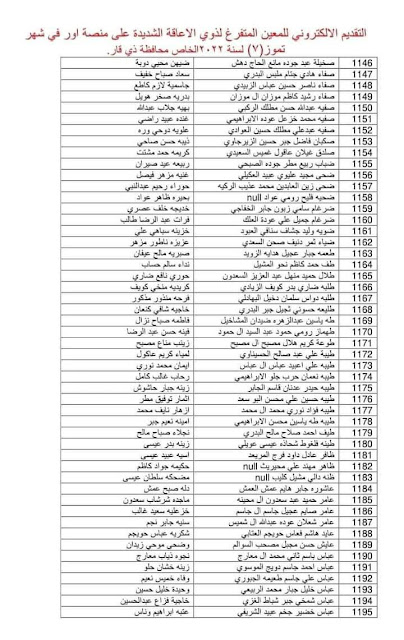 التقديم الالكتروني للمعين المتفرغ لذوي الاعاقة الشديدة على منصة اور في شهر
تموز(٧) لسنة ٢٠٢٢الخاص محافظة ذي قار.
1146 صخيلة عبد جوده مانع الحاج دهش ضيهن محيي دوبة
1147 صفاء هادي جثام ملبس البدري سعاد صباح خفيف
1148 صفاء ناصر حسين عباس الزبيدي جاسمية لازم كاطع
1149 صفاء رشيد كاظم موزان ال موزان بدريه صخر هويل
1150 صفيه عبدالله حسن مطلك الركبي بهيه جلاب عبدالله
1151 صفيه محمد خزعل عوده الابراهيمي غنده عبيد راضي
1152 صفيه عبدعلي مطلك حسين العوادي علويه دوحي وره
1153 صكبان فاضل جبر حسين الزيرجاوي ذيبه حسن صاحي
1154 صلدق غيلان عاقول غميس السعيدي كريمه حمد مشتت
1155 ضباب ربيع مطر جوده الصبحي ربيعه عيد صبران
1156 ضحى مجيد عليوي عبيد العكيلي غنيه مزهر فيصل
1157 ضحى زين العابدين محمد عذيب الركيه حوراء رحيم عبدالنبي
1158 ضحيه فليح رومي عواد null بحيره ظاهر عواد
1159 ضرغام سامي زبون جابر الخفاجي خديجه خلف عصري
1160 ضرغام جميل علي عودة العلك فرات عبد الرضا طالب
1161 ضويه وليد جشاف سنافي العبود خزينه سباهي علي
1162 ضياء ثمر دنيف صحن السعدي عزيزه ناطور مزهر
1163 طعمه جبار عجيل هدايه الزويد صبريه مالح عيفان
1164 طف حمد كاظم نحو المشيل نداء سالم حساب
1165 طلال حميد منهل عبد العزيز السعدون حوري نافع ضاري
1166 طلبه ضاري بدر كويف الزيادي كريديه متخي كويف
1167 طلبه دواس سلمان دخيل البهادلي فرحه منذور مذكور
1168 طليعه حسوني ثجيل جبر البدري خاجيه شافي كنعان
1169 طه ياسين عبدالزهره ضيدان المشاخيل فاطمه صباح نزال
1170 طهماز رومي حمود عبد السيد ال حمود فينه حسن عبد الرضا
1171 طوعة كريم هلال مصبح ال مصبح زينب مناع مصبح
1172 طيبة علي عبد صالح الحسيناوي لمياء كريم عاكول
1173 طيبه علي اعبيد عباس ال عباس ايمان محمد نوري
1174 طيبه نعمان حرب حلو الابراهيمي رحاب غالب كامل
1175 طيبه حيدر عدنان قاسم الجابر زينه جبار حاشوش
1176 طيبه حسين علي محسن البو سعد اثمار توفيق مطر
1177 طيبه فؤاد نوري محمد ال محمد ازهار نايف محمد
1178 طيبه طه ياسين محسن الابراهيمي امينه نعيم جبر
1179 طيف احمد صلاح مالح البدري نجلاء صباح مالح
1180 طينه فلغوط شحاذه عيسى عويلي زينه بدر عيسى
1181 ظافر عادل داود فرج المريعد اسيه عبيد عيسى
1182 ظافر مهند علي محيريث null حكيمه جواد كاظم
1183 ظنه دالي مشيل كليب null مضحكه سلطان عيسى
1184 عاشوره جابر هايم عمش العمش دله صبح عمش
1185 عامر حميد عبد سعدون ال محينه ماجده شرشاب سعدون
1186 عامر صايم عجيل جاسم ال جاسم خزعليه سعيد غالب
1187 عامر شعلان عوده عبدالله ال شميس سنيه جابر نجم
1188 عايد هاشم فعاس حويجم العتابي شكريه عباس حويجم
1189 عايش حسن مجبل مصحب السوالم وضحى موحي زيدان
1190 عباس باسم ثاني محمد ال معارج نجوه ذياب معارج
1191 عباس احمد جاسم دويج الموسوي زينه خشان حلو
1192 عباس علي جاسم طعيمه الجبوري وفاء خميس نعيم
1193 عباس خليل جبار محمد الربيعي وحيدة خليل حسين
1194 عباس شمخي جبر شياط الغزي خاجية فزاع عبدالحسين
1195 عباس خضير جخم عبيد الشريفي عتبه ابراهيم وناس